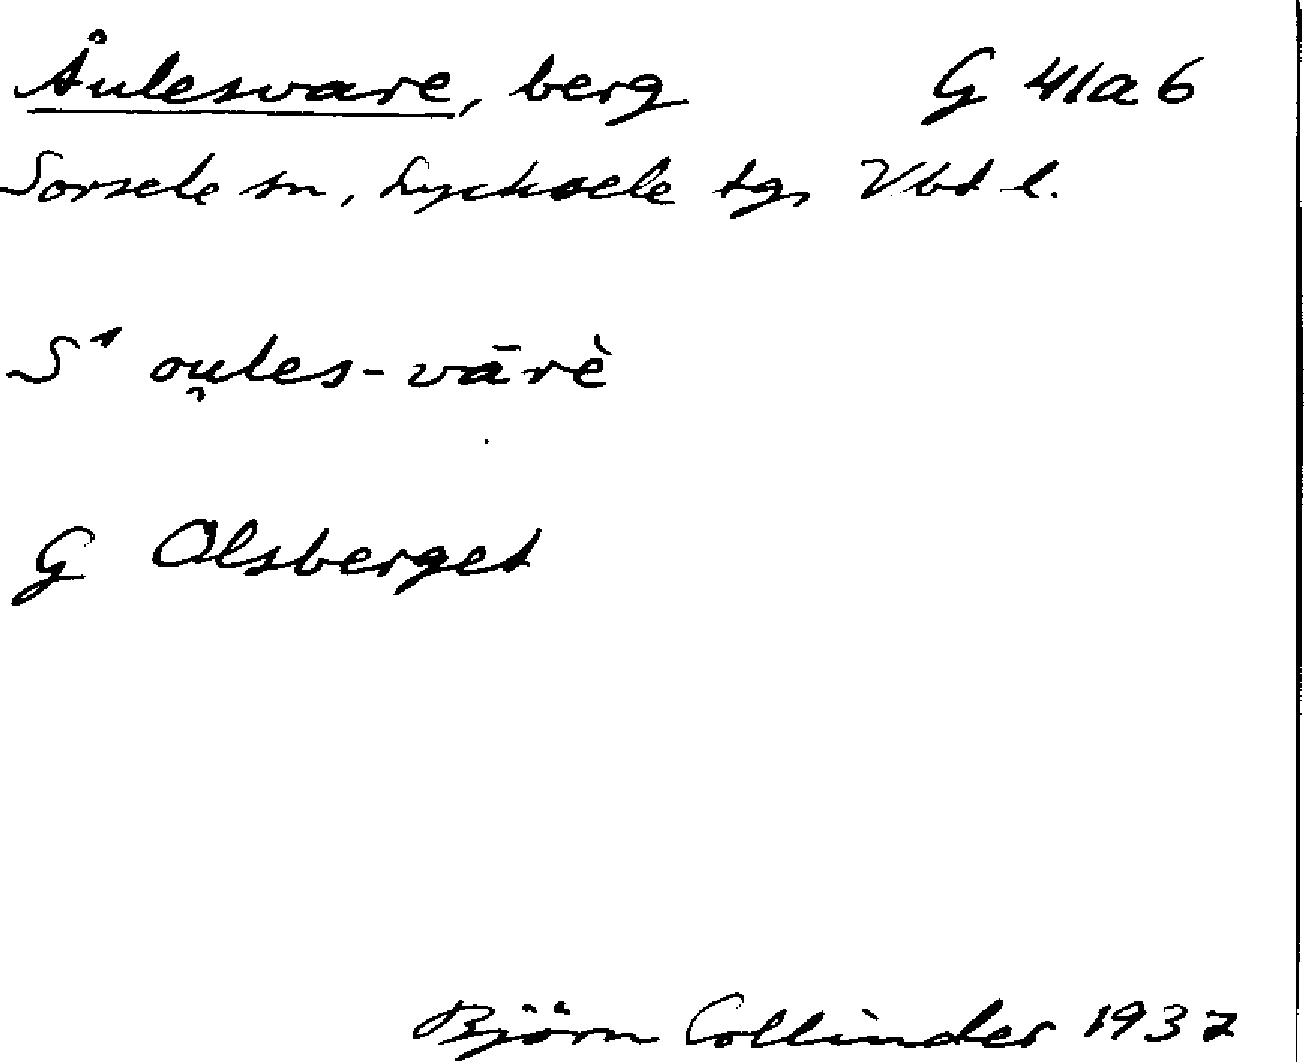 Åulesvare, berg G 41a6
Sorsele sn, Lycksele tg, Vbt l.
S¹ ou̯les-vārè
G Olsberget
Björn Collinder 1937